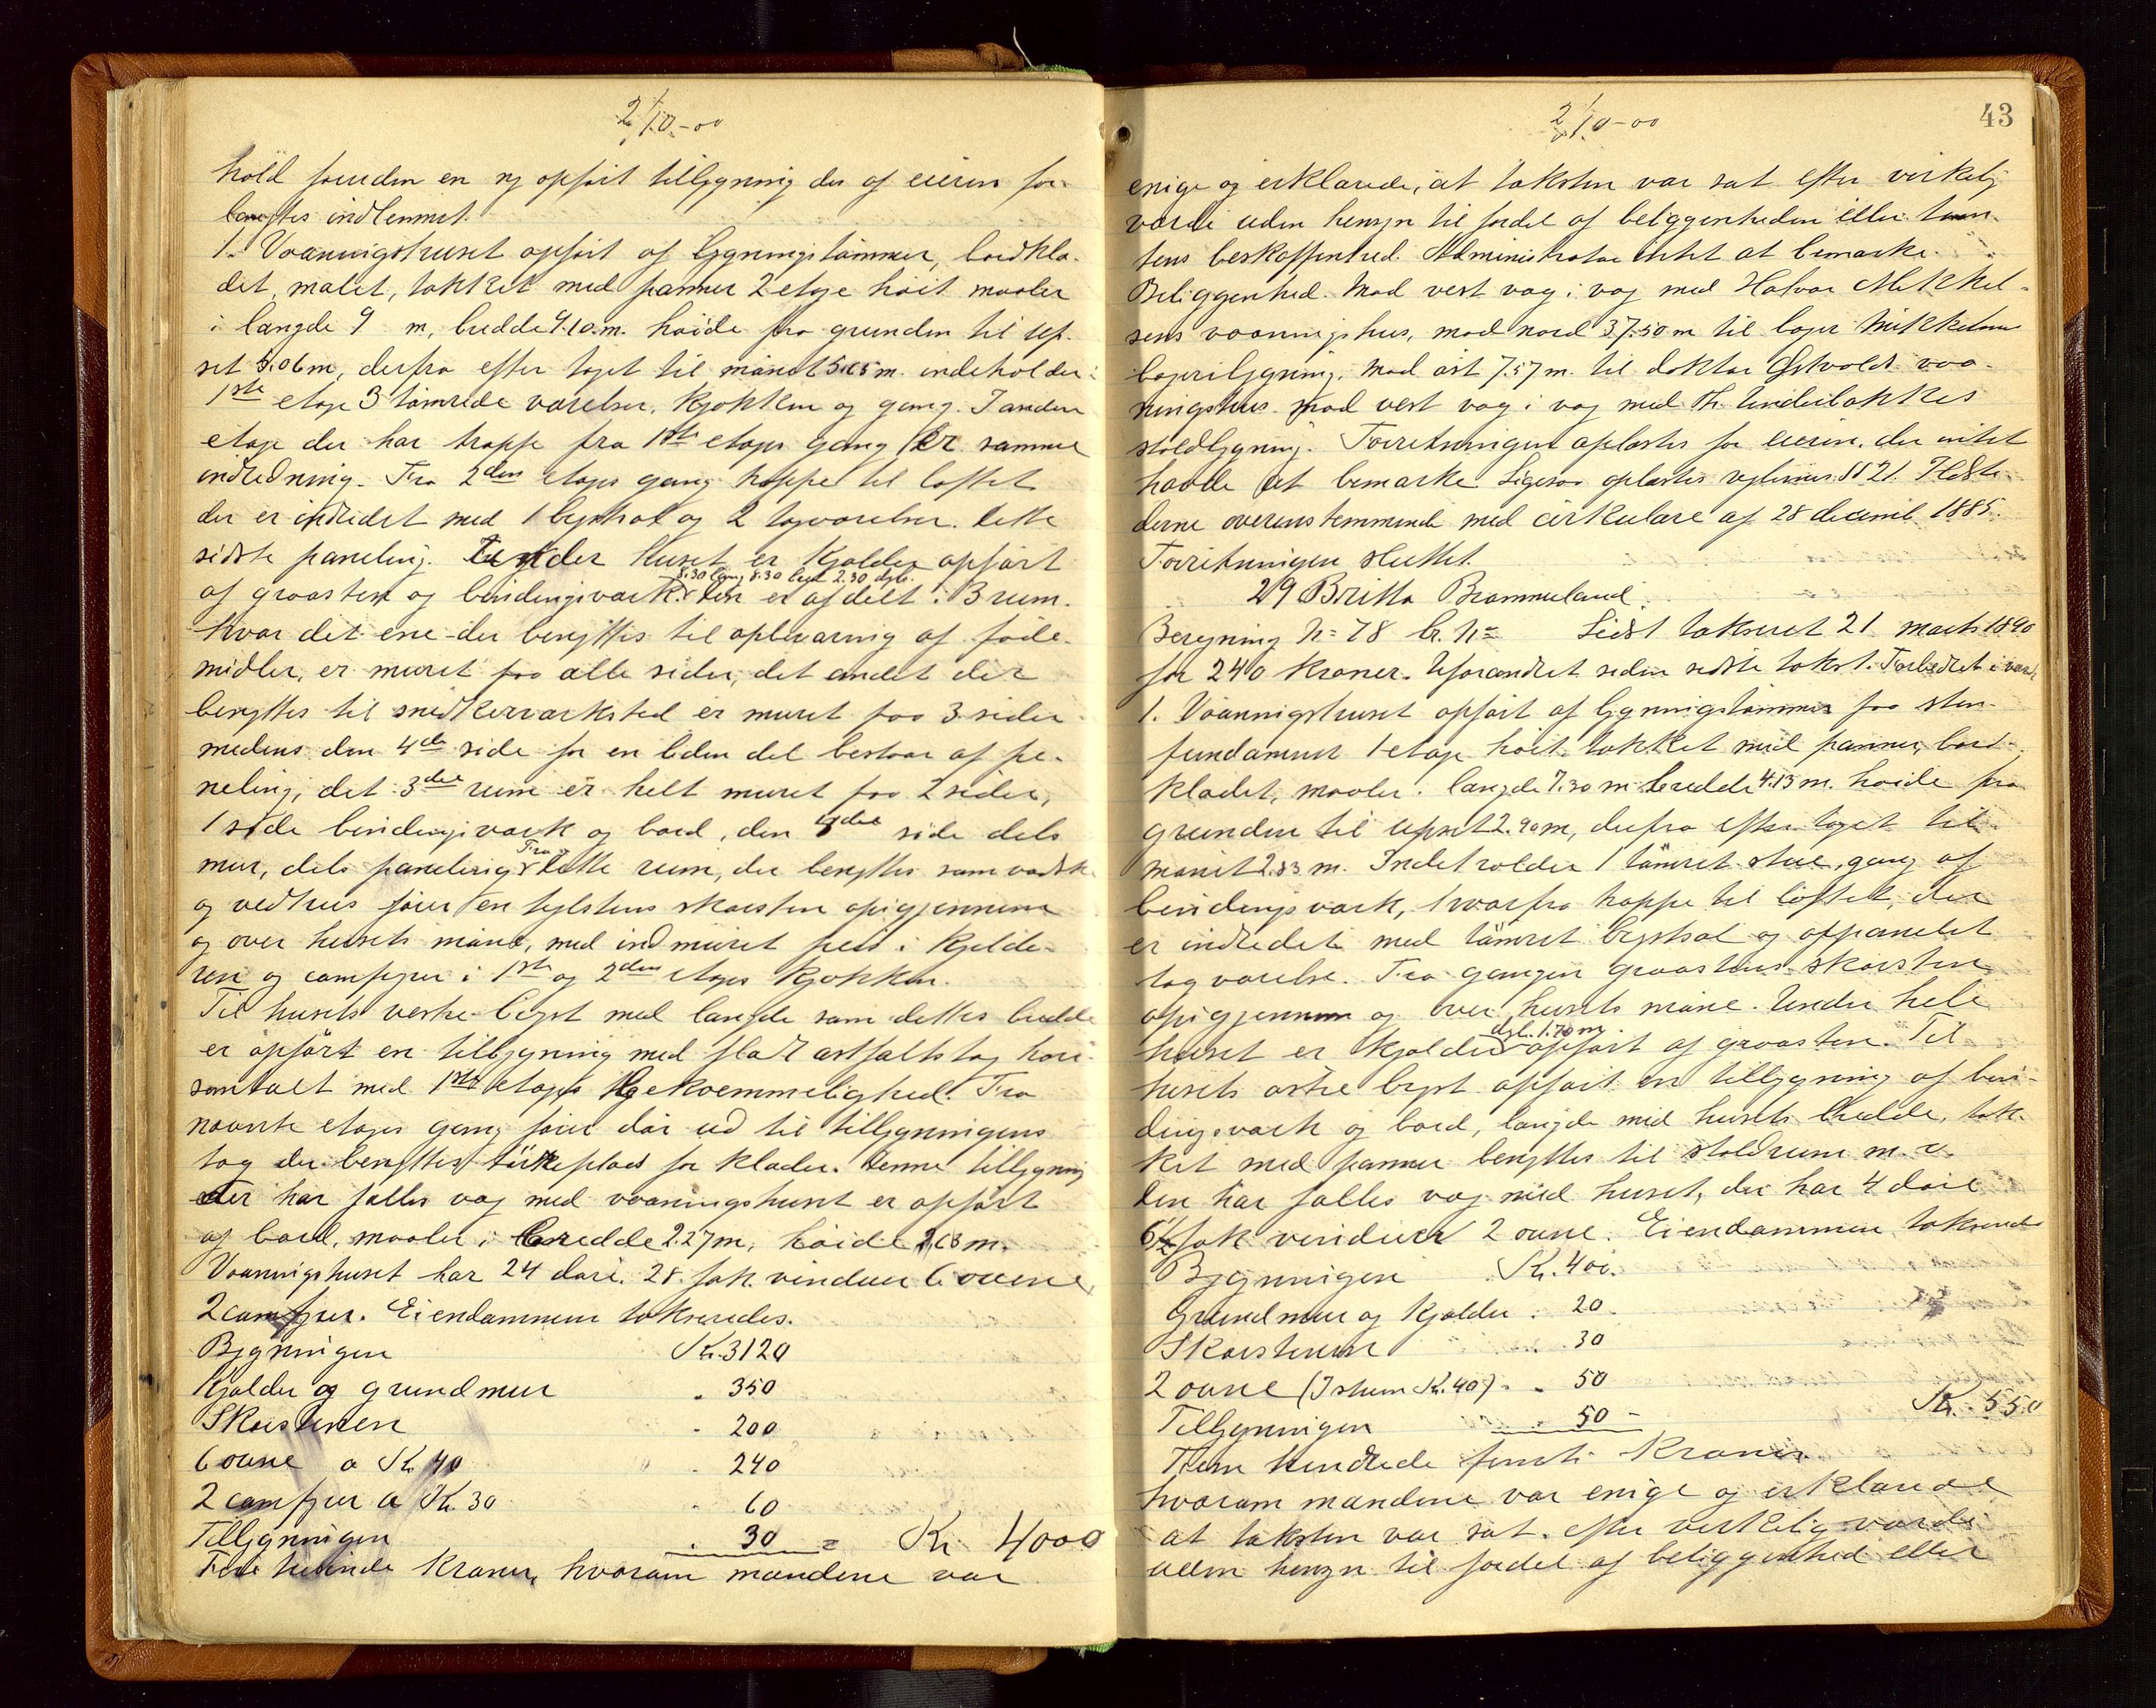 2/10-00
hold foruden en ny opført tilbygning der af eieren for-
langtes indlemmet.
1. Vaaningshuset opført af bygningstømmer, bordklæ-
det, malet, tækket med panner 2 etage høit maaler
i længde 9 m, bredde 9.10 m. høide fra grunden til up-
set 5.06 m, derfra efter taget til mønet 5.65 m. indeholder i
1ste etage 3 tømrede værelser, kjøkken og gang. I anden
etage der har trappe fra 1ste etages gang er samme
indredning. Fra 2den etages gang trappe til loftet
der er indredet med 1 bystral og 2 tagværelser. dette
sidste paneling. Under huset er kjælder opført
8.30 lang 8.30 bred 2.30 dyb.
af graasten og bindingsværk den er afdelt i 3 rum.
hvor det ene der benyttes til opbevarnig af føde-
midler, er muret paa alle sider, det andet der
benyttes til snedkerværksted er muret paa 3 sider
medens den 4de side for en liden del bestaar af pa-
neling, det 3die rum er helt muret paa 2 sider,
1 side bindingsværk og bord, den 4de side dels
mur, dels paneling. Fra dette rum, der benyttes som vadsk-
og vedhus fører en teglstens skorsten opigjennem
og over husets møne, med indmuret peis i kjælde-
ren og comfyrer i 1ste og 2den etages kjøkken.
Til husets vestre bygt med længde som dettes bredde
er opført en tilbygning med fladt asfaltstag hori-
sontalt med 1ste etages bekvemmelighed. Fra
nævnte etages gang fører dør ud til tilbygningens
tag der benyttes tørkeplads for klæder. Denne tilbygning
der har fælles væg med vaaningshuset er opført
af bord, maaler i bredde 2.27 m, høide 2.63 m.
Vaaningshuset har 24 døre. 28 fak vinduer 6 ovne,
2 comfyrer. Eiendommen takseredes.
Bygningen Kr. 3120
Kjælder og grundmur " 350
Skorstenen " 200
6 ovne a Kr 40 " 240
2 comfyrer a Kr. 30 " 60
Tilbygningen " 30 = Kr. 4000
Fire tusinde kroner, hvorom mændene var
2/10-00
43
enige og erklærede, at taksten var sat efter virkelig
værdi uden hensyn til fordel af beliggenheden eller tom-
tens beskaffenhed. Administrator intet at bemærke.
Beliggenhed. Mod vest væg i væg med Halvor Mikkel-
sens vaaningshus, mod nord 37.50 m til bager Mikkelsens
bageribygning, mod øst 7.57 m. til doktor Østvolds vaa-
ningshus mod vest væg i væg med Th. Underbakkes
stoldbygning. Forretningen oplæstes for eieren, der intet
havde at bemærke Ligesaa oplæstes reglernes §§ 21.
derne overensstemmende med cirkulære af 28 decemb 1885.
Forretningen sluttet.
29 Britta Brommeland.
Bergning No 78 br. No Sidst takseret 21 marts 1890
for 240 kroner. Uforandret siden sidste takst. Forbedret i værdi
1. Vaaningshuset opført af bygningstømmer paa sten-
fundament 1 etage høit tækket med panner, bord-
klædet, maaler i længde 7.30 m bredde 4.13 m. høide fra
grunden til upset 2.90 m, derfra efter taget til
mønet 2.83 m. Indeholder 1 tømret stue, gang af
bindingsværk, hvorfra trappe til loftet, der
er indredet med tømret bystral og afpanelet
tagværelse. Fra gangen graastens skorsten
opigjennem og over husets møne. Under hele
dyb. 1.70 m
huset er kjælder opført af graasten. Til
husets østre bygt opført en tilbygning af bin-
dingsværk og bord, længde med husets bredde, tæk-
ket med panner benyttes til stoldrum m. v.
den har fælles væg med huset, der har 4 døre
6 1/2 fak vinduer 2 ovne. Eiendommen takseredes
Bygningen Kr. 400.
Grundmur og kjælder " 20
Skorstenen " 30
2 ovne (I stuen Kr. 40) " 50
Tilbygningen " 50 - Kr. 550
Fem hundrede femti kroner
hvorom mændene var enige og erklærede
at taksten var sat efter virkelig værdi
uden hensyn til fordel af beliggenhed eller